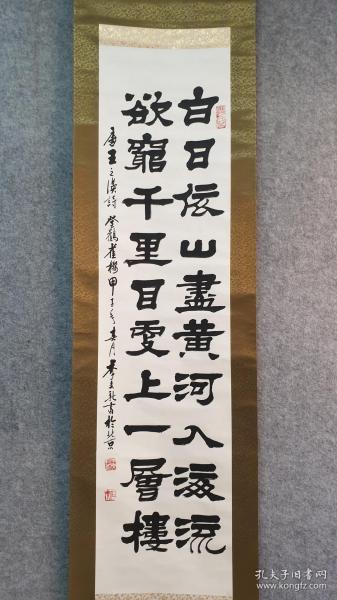 白日依山盡黄河入海流
欲窮千里目更上一層樓
唐王之渙詩登鸛雀樓甲子年春月李書於北京
孔夫子旧书网
www.kongfz.com